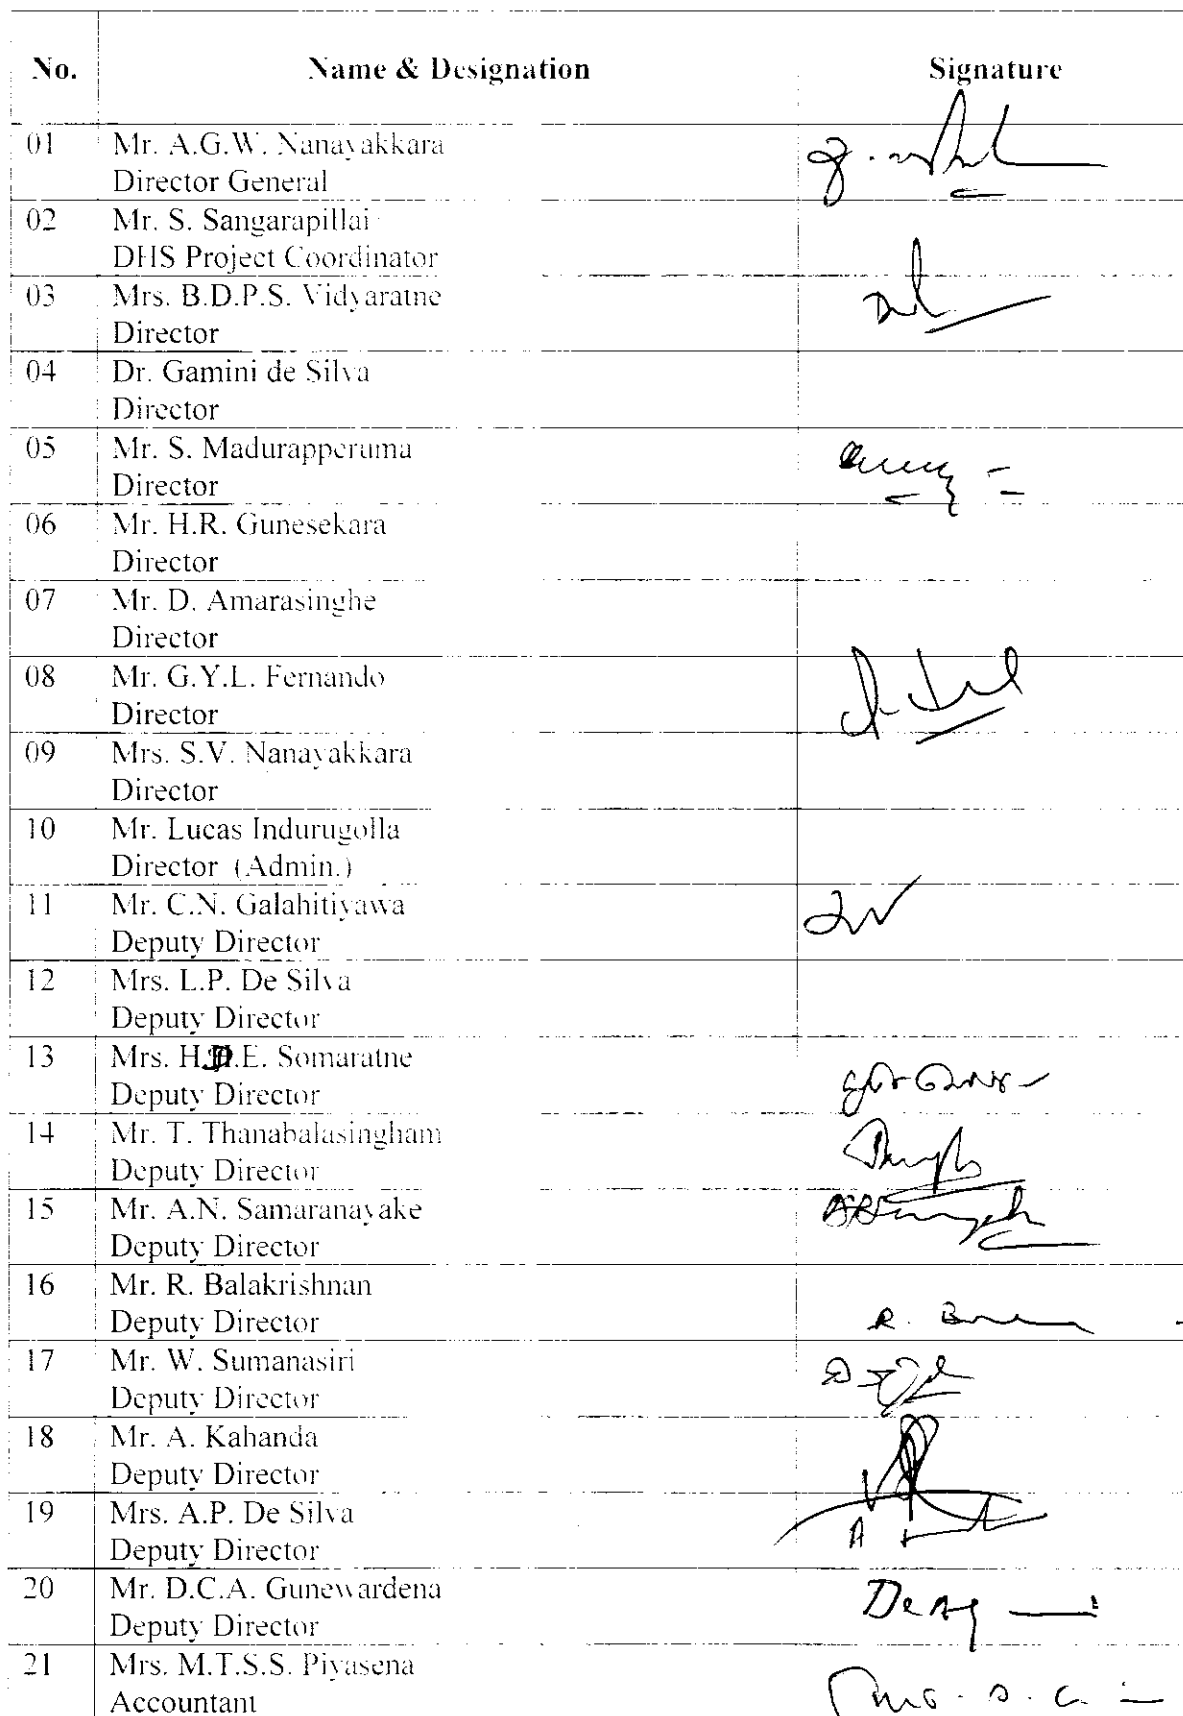 No. Name & Designation Signature
01 Mr. A.G.W. Nanayakkara
Director General
02 Mr. S. Sangarapillai
DHS Project Coordinator
03 Mrs. B.D.P.S. Vidyaratne
Director
04 Dr. Gamini de Silva
Director
05 Mr. S. Madurapperuma
Director
06 Mr. H.R. Gunesekara
Director
07 Mr. D. Amarasinghe
Director
08 Mr. G.Y.L. Fernando
Director
09 Mrs. S.V. Nanayakkara
Director
10 Mr. Lucas Indurugolla
Director (Admin.)
11 Mr. C.N. Galahitiyawa
Deputy Director
12 Mrs. L.P. De Silva
Deputy Director
13 Mrs. Somaratne
Deputy Director
14 Mr. T. Thanabalasingham
Deputy Director
15 Mr. A.N. Samaranayake
Deputy Director
16 Mr. R. Balakrishnan
Deputy Director R.
17 Mr. W. Sumanasiri
Deputy Director
18 Mr. A. Kahanda
Deputy Director
19 Mrs. A.P. De Silva
Deputy Director
20 Mr. D.C.A. Gunewardena
Deputy Director
21 Mrs. M.T.S.S. Piyasena
Accountant